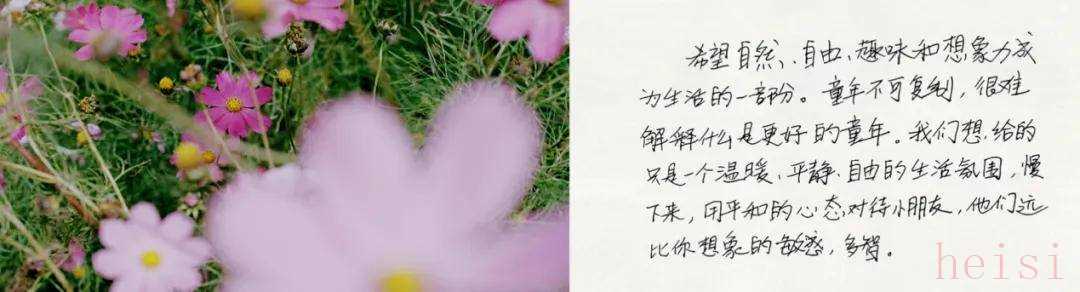 希望自然、自由、趣味和想象力成
为生活的一部份。童年不可复制，很难
解释什么是更好的童年。我们想给的
只是一个温暖、平静、自由的生活氛围，慢
下来，用平和的心态对待小朋友，他们远
比你想象的敏感，多智。
heisi